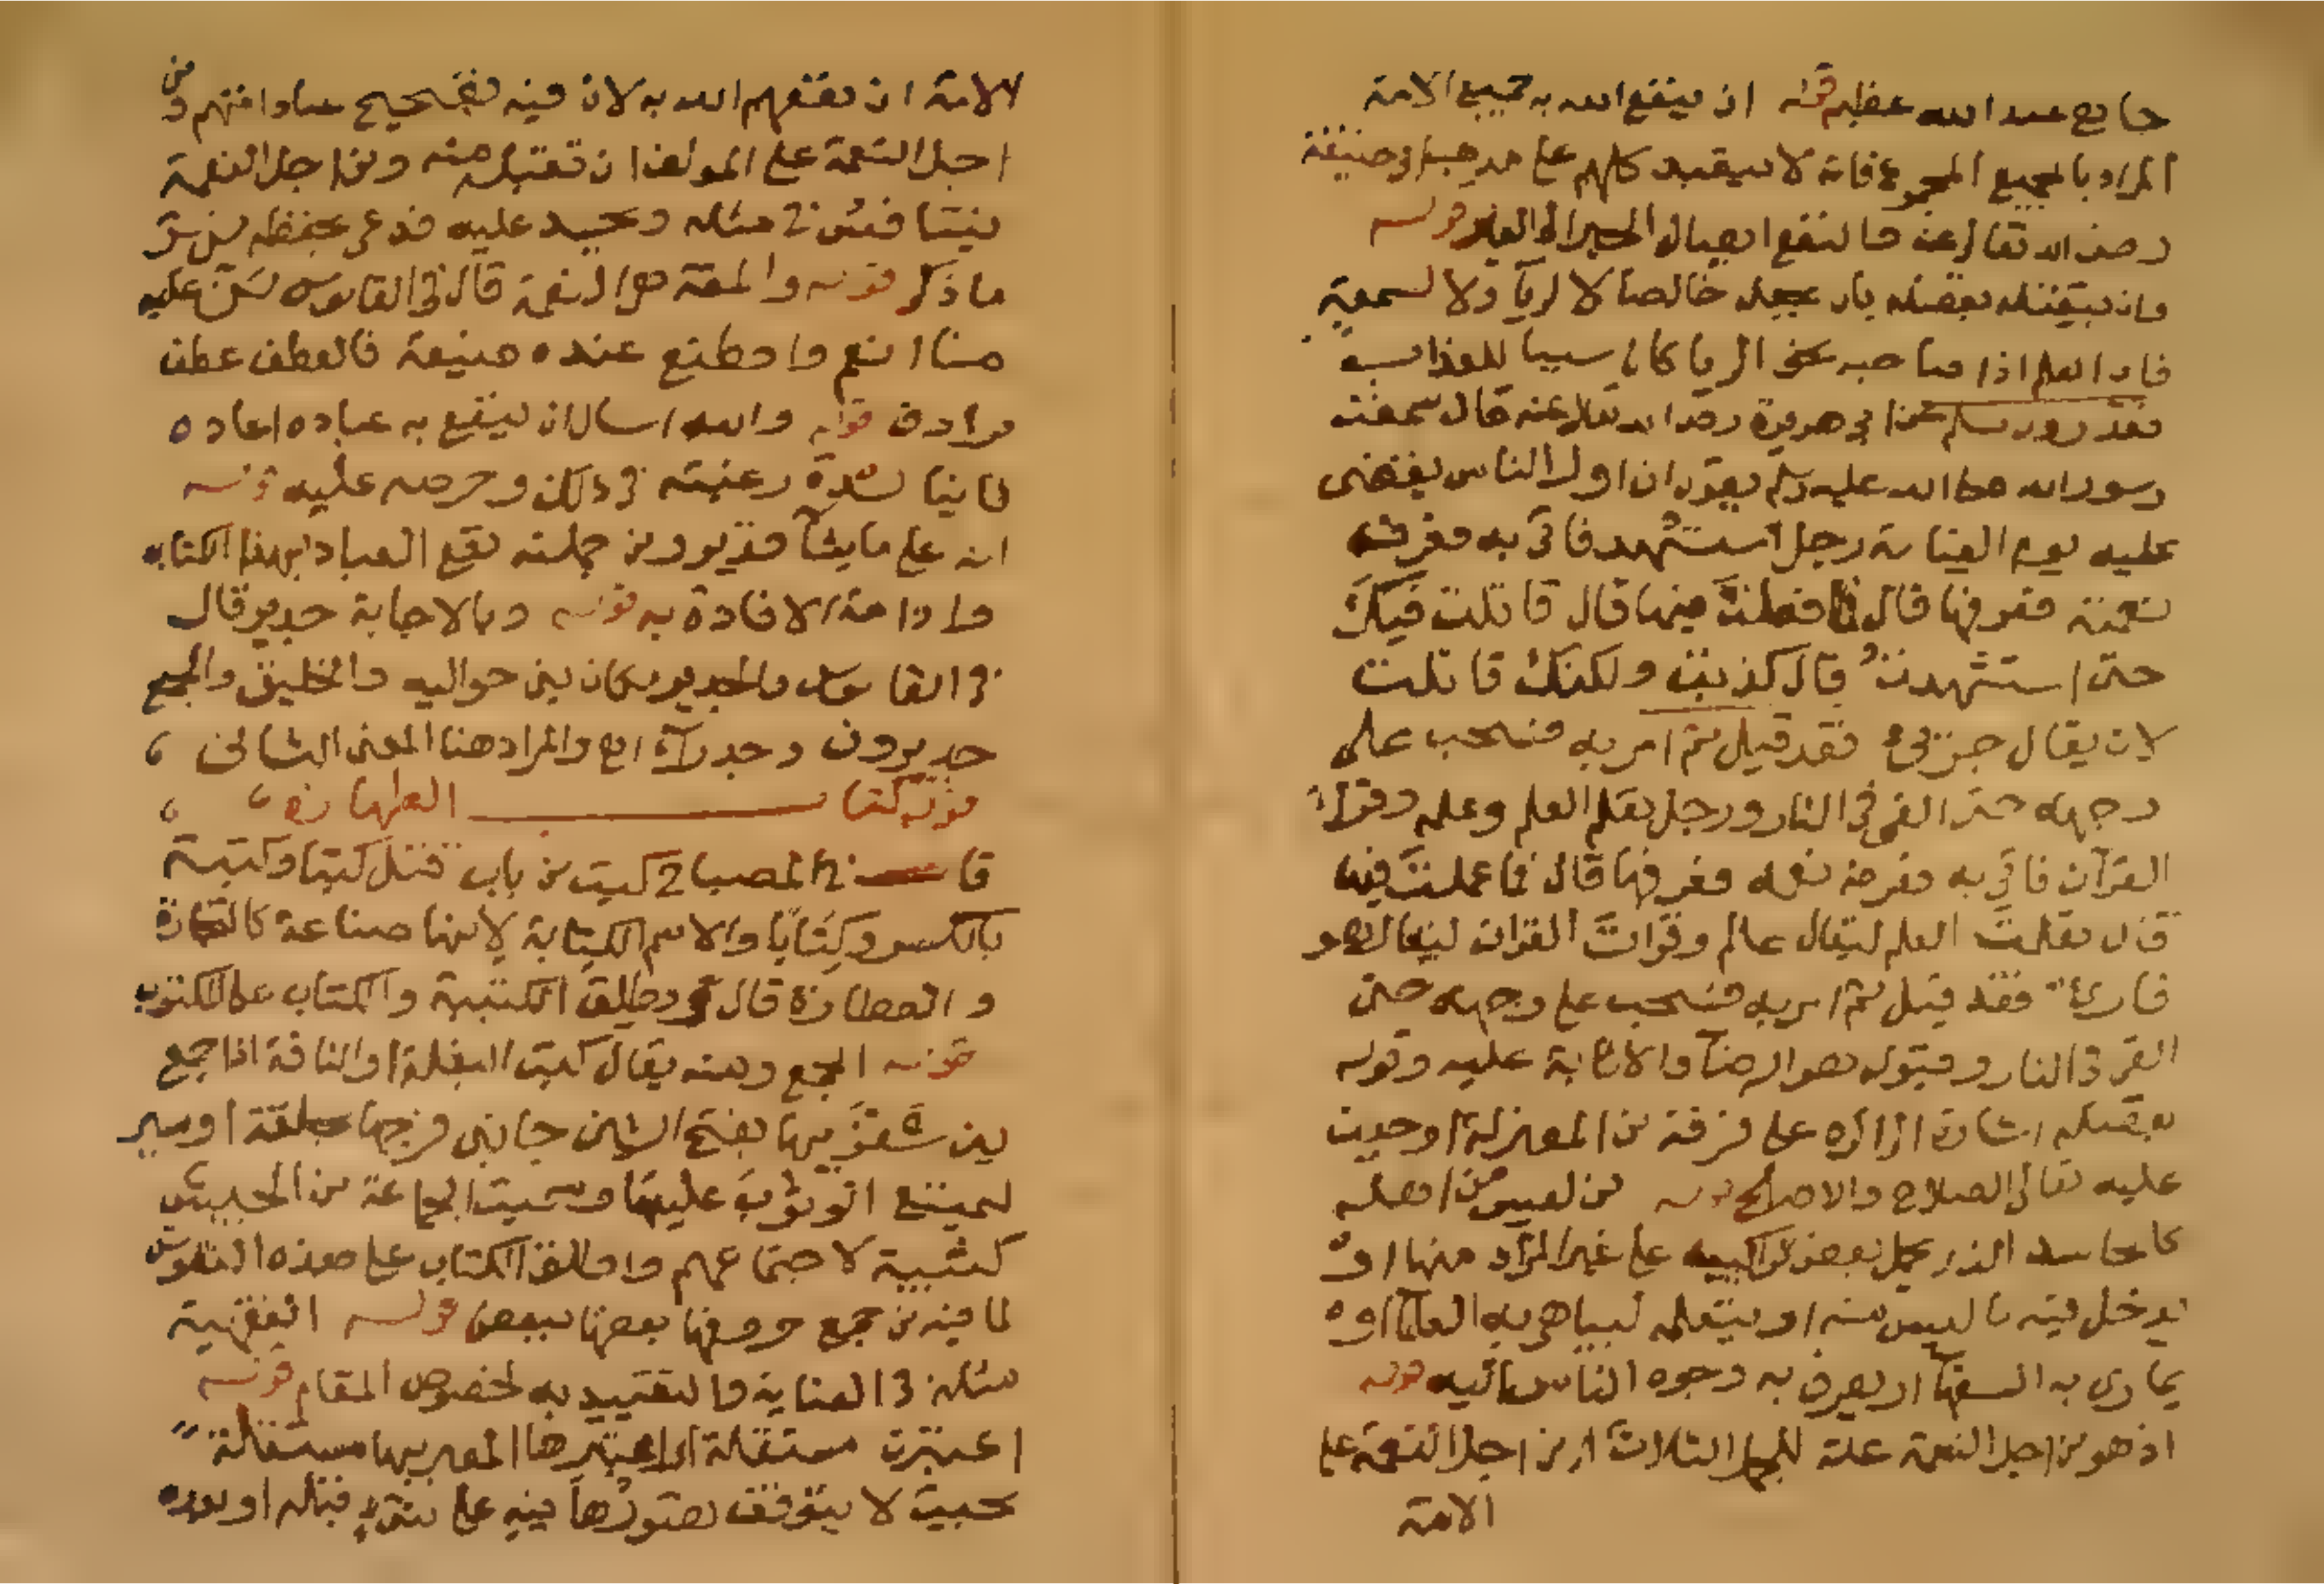 جامع عبد الله عظيم قوله ان ينفع الله به جميع الامة
المراد بالجميع المجموع فانه لا يتقيد كلهم على مذهب ابي حنيفة
رضي الله تعالى عنه والنفع ايصال الخير الى الغير قوله
وان يتقبله بفضله بان يجعله خالصا لا لريآ ولا لسمعة
فان العلم اذا صاحبه نحو الريا كان سببا للعذاب
فقد روى مسلم عن ابي هريرة رضي الله تعالى عنه قال سمعت
رسول الله صلى الله عليه وسلم يقول ان اول الناس يقضى
عليه يوم القيامة رجل استشهد فاتى به فعرفه
نعمته فعرفها قال فما فعلت فيها قال قاتلت فيك
حتى استشهدت قال كذبت ولكنك قاتلت
لان يقال جرئ فقد قيل ثم امر به فسحب على
وجهه حتى القى في النار ورجل تعلم العلم وعلمه وقرا
القرآن فاتى به فعرفه نعمه فعرفها قال فما عملت فيها
قال تعلمت العلم ليقال عالم وقرات القران ليقال هو
قارئ فقد قيل ثم امر به فسحب على وجهه حتى
القى في النار وقبوله هو الرضآ والاثابة عليه وقوله
بفضله اشارة الى الرد على فرقة من المعتزلة اوجبت
عليه تعالى الصلاح والاصلح قوله لمن ليس من اهله
كالحاسد الذي يحمل بعض تراكيبه على غير المراد منها او
يدخل فيه ما ليس منه او يتعلمه ليباهي به العلمآ او
يماري به السفهآ او يصرف به وجوه الناس اليه قوله
اذ هو من اجل النعمة علة للجمل الثلاث اي من اجل النعمة على
الامة
الامة ان نفعهم الله به لان فيه تصحيح عباداتهم ومن
اجل النعمة على المولف ان تقبل منه ومن اجل النعمة
يتنافس في مثله ويحسد عليه فدعى بحفظه من شر
ما ذكر قوله والمنة هي النعمة قال في القاموس من عليه
منا انعم واصطنع عنده صنيعة فالعطف عطف
مرادف قوله والله اسال ان ينفع به عباده اعاده
ثانيا لشدة رغبته في ذلك وحرصه عليه قوله
انه على ما يشآ قدير ومن جملته نفع العباد بهذا الكتاب
وادامة الافادة به قوله وبالاجابة جدير قال
في القاموس والجدير مكان بني حواليه والخليق والجمع
جديرون وجدرآء اه والمراد هنا المعنى الثاني
قوله كتاب الطهارة
قال في المصباح كتبت من باب قتل كتبا وكتبة
بالكسر وكتابا والاسم الكتابة لانها صناعة كالتجارة
والعطارة قال وتطلق الكتبة والكتاب على المكتوب
قوله الجمع ومنه يقال كتبت البغلة او الناقة اذا جمع
بين شفريها بفتح الشين جانبي فرجها بحلقة او سير
ليمتنع الوثوب عليها وسميت الجماعة من الجيش
كتيبة لاجتماعهم واطلق الكتاب على هذه النقوش
لما فيه من جمع حروفها بعضها ببعض قوله الفقهية
مثله في العناية والتقييد به لخصوص المقام قوله
اعتبرت مستقلة اي اعتبرها المعبر بها مستقلة
بحيث لا يتوقف تصورها فيه على شيء قبله او بعده